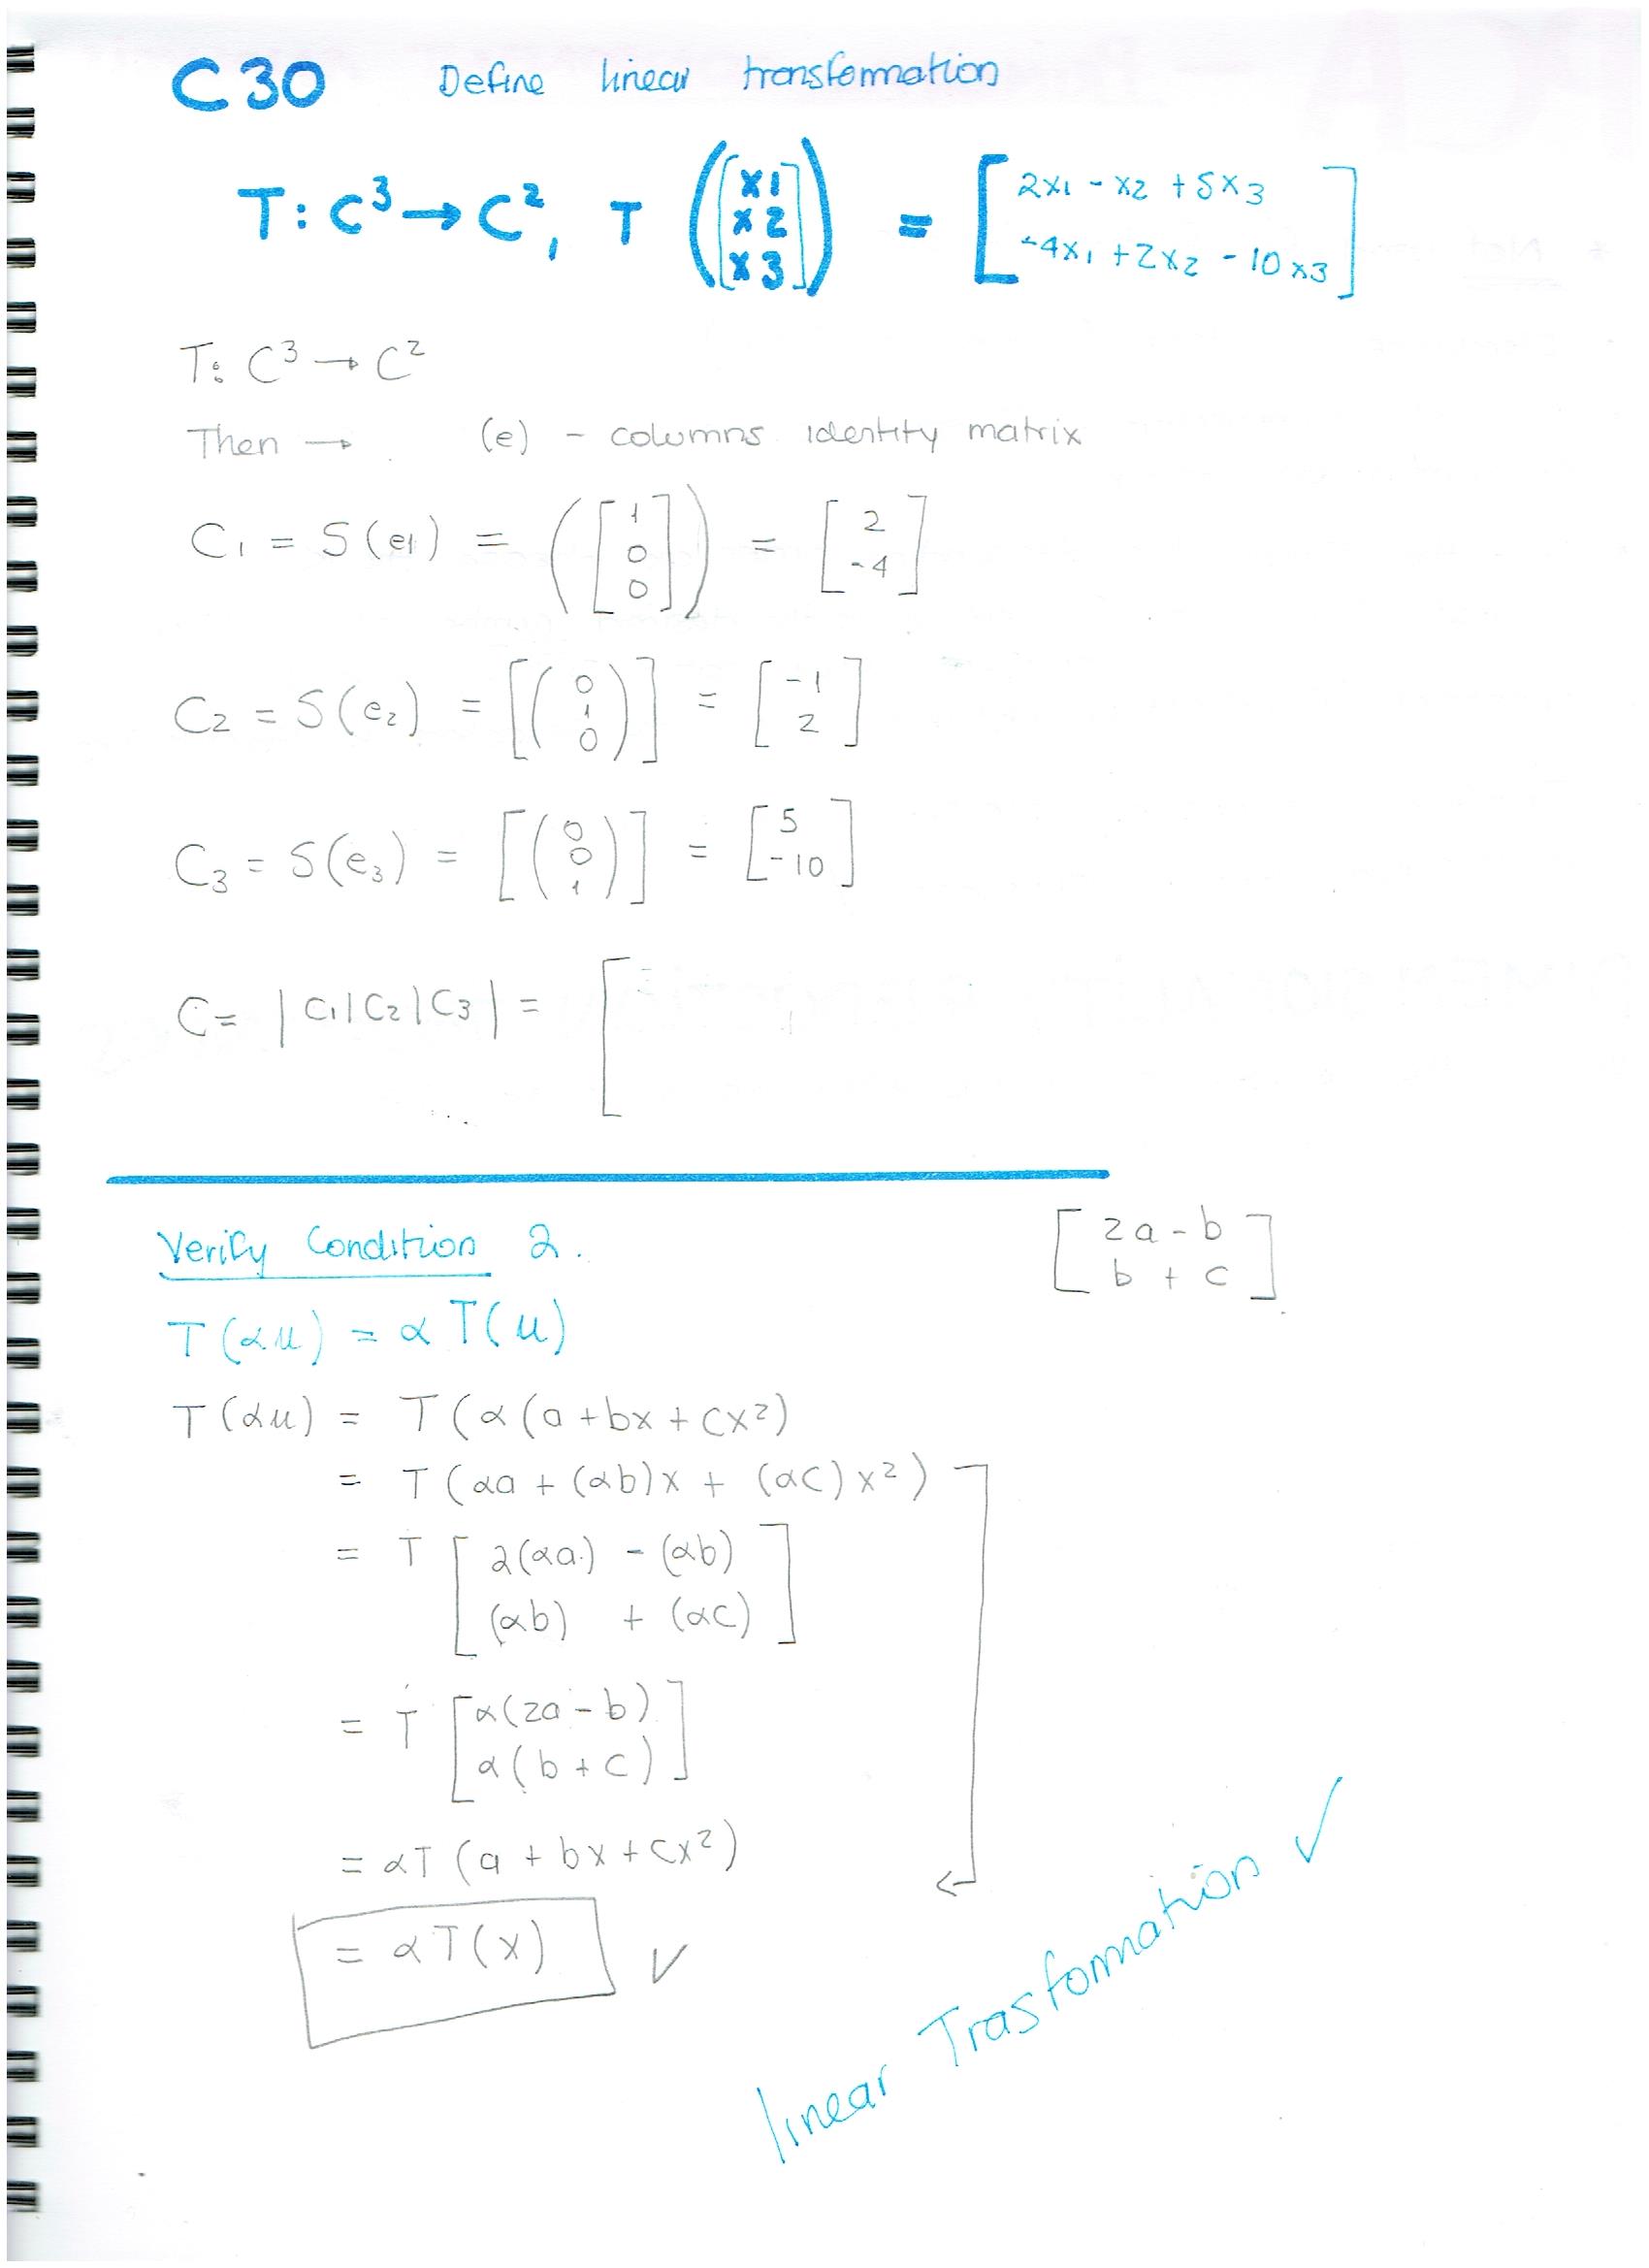 C30 Define linear transformation
T: C³ → C², T ([x1 x2 x3]) = [2x1 - x2 + 5x3
-4x1 + 2x2 - 10x3]
T: C³ → C²
Then → (e) - columns identity matrix
C1 = S(e1) = ([1 0 0]) = [2 -4]
C2 = S(e2) = [(0 1 0)] = [-1 2]
C3 = S(e3) = [(0 0 1)] = [5 -10]
C = |C1|C2|C3| = [
Verify Condition 2.
[2a - b
b + c]
T(αu) = αT(u)
T(αu) = T(α(a + bx + cx²)
= T(αa + (αb)x + (αc)x²)
= T [2(αa) - (αb)
(αb) + (αc)]
= T [α(2a - b)
α(b + c)]
= αT (a + bx + cx²)
= αT(x) ✓
linear Trasformation ✓